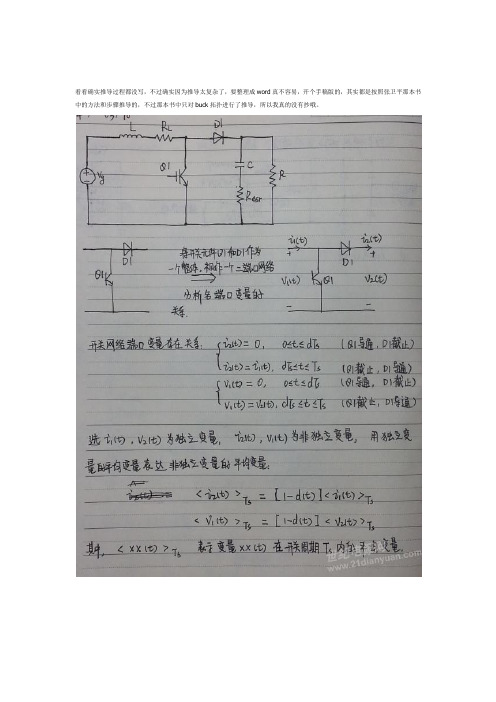 看着确实推导过程都没写，不过确实因为推导太复杂了，要整理成 word 真不容易，开个手稿版的，其实都是按照张卫平那本书
中的方法和步骤推导的，不过那本书中只对 buck 拓扑进行了推导，所以我真的没有抄哦。
L RL D1
Q1 C R
Vg Resr
i1(t) i2(t)
D1 将开关元件Q1和D1作为 D1
Q1 一个整体，视作一个二端口网络 V1(t) Q1 V2(t)
分析各端口变量的
关系.
开关网络端口变量存在关系.
i2(t) = 0, 0≤t≤dTs (Q1导通, D1截止)
i2(t) = i1(t), dTs≤t≤Ts (Q1截止, D1导通)
V1(t) = 0, 0≤t≤dTs (Q1导通, D1截止)
V1(t) = V2(t), dTs≤t≤Ts (Q1截止, D1导通)
选 i1(t), V2(t) 为独立变量, i2(t), V1(t) 为非独立变量, 用独立变
量的平均变量表达非独立变量的平均变量:
<i2(t)>Ts = [1-d(t)]<i1(t)>Ts
<V1(t)>Ts = [1-d(t)]<V2(t)>Ts
其中, <xx(t)>Ts 表示变量xx(t)在开关周期Ts内的平均变量.
www.21dianyuan.com